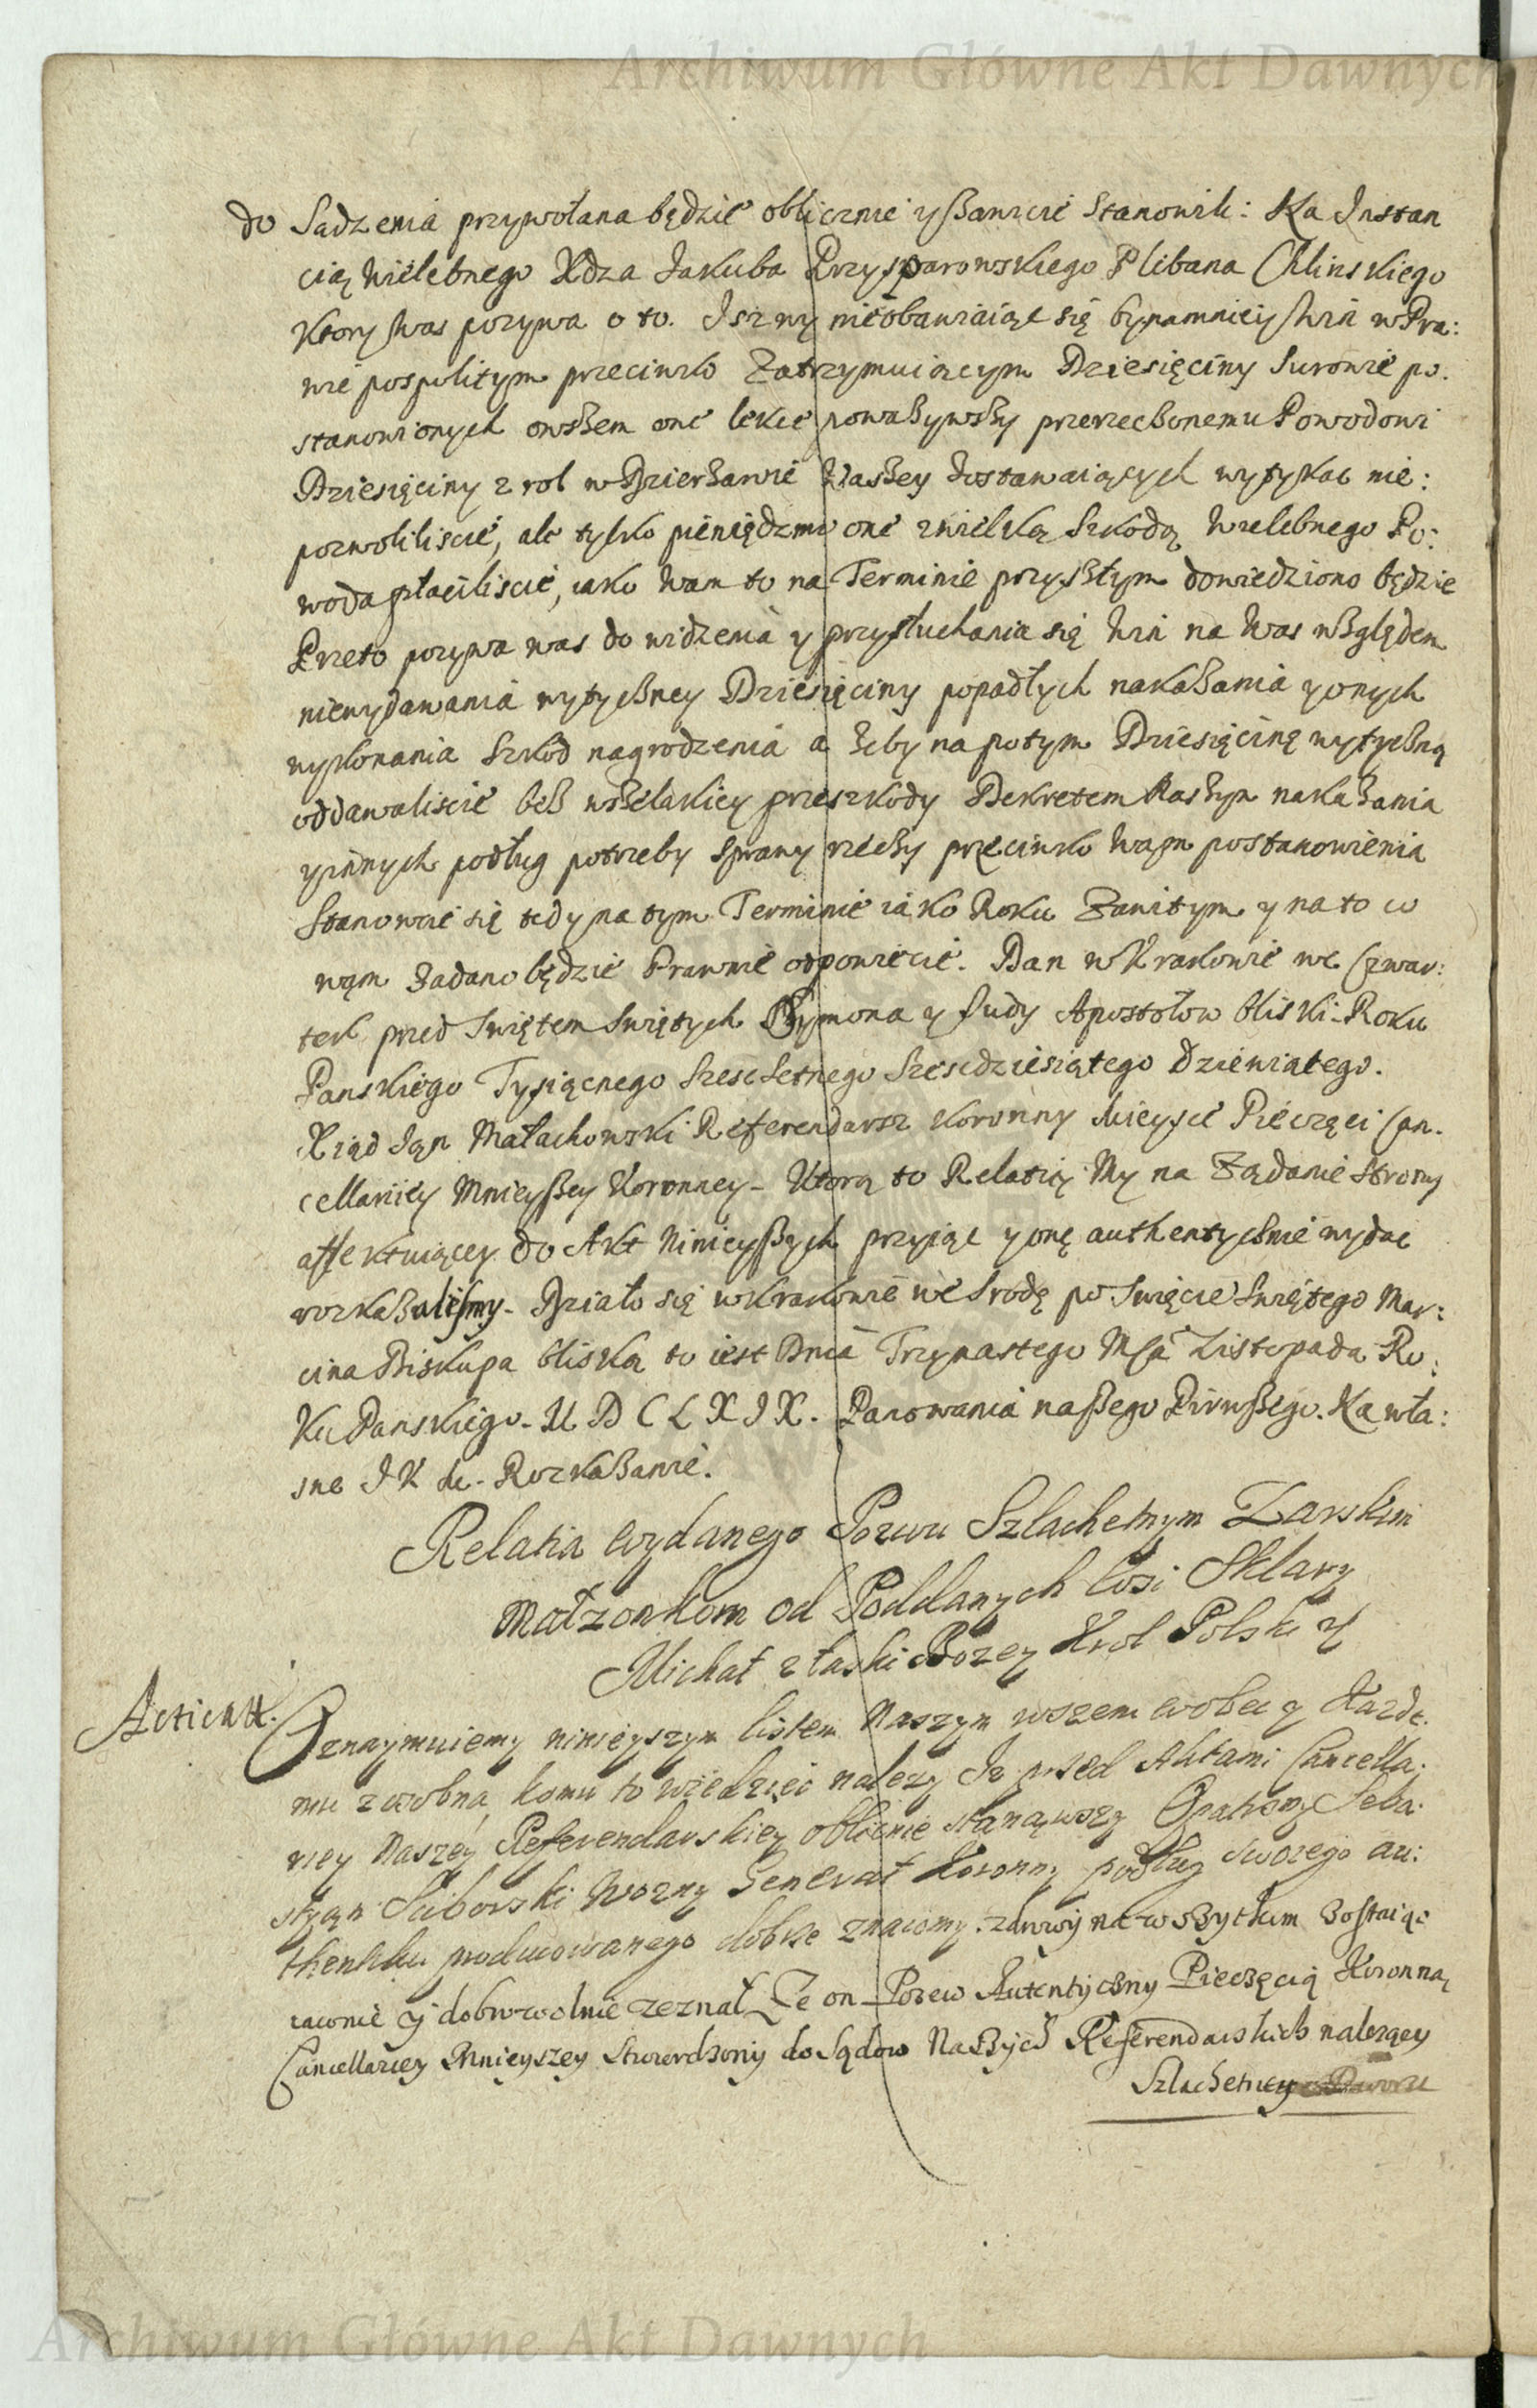 Archiwum Główne Akt Dawnych
do Sądzenia przywołana będzie oblicznie y zawicie Stanowili: Na Instan
cią Wielebnego Xdza Jakuba Przysparowskiego Plibana Chlinskiego
Ktory Was pozywa o to. Isz wy nieobawiaiąc się bynamniey Win w Pra:
wie pospolitym przeciwko Zatrzymuiącym Dziesięciny Surowie po.
stanowionych owszem one lekce poważywszy przerzeczonemu Powodowi
Dziesięciny z rol w Dzierżawie Waszey zostawaiących wytykac nie:
pozwoliliscie, ale tylko pieniędzmi one z wielką Szkodą Wielebnego Po:
woda płaciliscie, iako Wam to na Terminie przyszłym dowiedziono będzie
Przeto pozywa was do widzenia y przysłuchania się Win na Was względem
niewydawania wytyczney Dziesięciny popadłych nakazania y onych
wykonania Szkod nagrodzenia a żeby napotym Dziesięcinę wytyczną
oddawaliscie bez wszelakiey przeszkody Dekretem Naszym nakazania
y innych podług potrzeby Sprawy rzeczy przeciwko Wam postanowienia
Stanowcie się tedy na tym Terminie iako Roku Zawitym y na to co
wąm zadano będzie Prawnie odpowiecie. Dan w Krakowie we Czwar:
tek przed Swiętem Swiętych Szymona y Judy Apostołow bliski. Roku
Panskiego Tysiącnego Szescsetnego Szescdziesiątego dziewiątego.
Xiąd Jąn Małachowski Referendarsz Koronny Mieysce Pieczęci Can.
cellariey Mnieyszey Koronney. Ktorą to Relatią My na Ządanie Strony
affektuiącey do Akt Ninieyszych przyiąc y onę authentycznie wydac
rozkazalismy. Działo się w Krakowie we Srodę po Swięcie Swiętego Mar:
cina Biskupa bliską to iest Dnia Trzynastego Msca Listopada Ro:
Ku Panskiego. M D C L X I X. Panowania naszego Pirwszego. Na wła:
sne I K Mc. Rozkazanie.
Relatia wydanego Pozwu Szlachetnym Zarskim
Małzonkom od Poddanych Wsi Sklary
Michał z łaski Bozey Krol Polski etc
Acticatt.
Oznaymuiemy ninieyszym listem Naszym wszem wobec y Kazde.
mu z osobna, komu to wiedzieć nalezy Iz przed Aktami Cancella:
riey Naszey Referendarskiey oblicnie stanąwszy Opatrzny Seba.
styąn Sciborski Wozny Generał Koronny podług swoiego au:
thentiku producowanego dobrze znaiomy. zdrowy na wszytkim zostaiąc
iawnie y dobrowolnie zeznał Ze on Pozew Autentyczny Pieczęcią Koronną
Cancellariey Mnieyszey Stwierdzony do Sądow Naszych Referendarskich nalezący
Szlachetney
Archiwum Główne Akt Dawnych